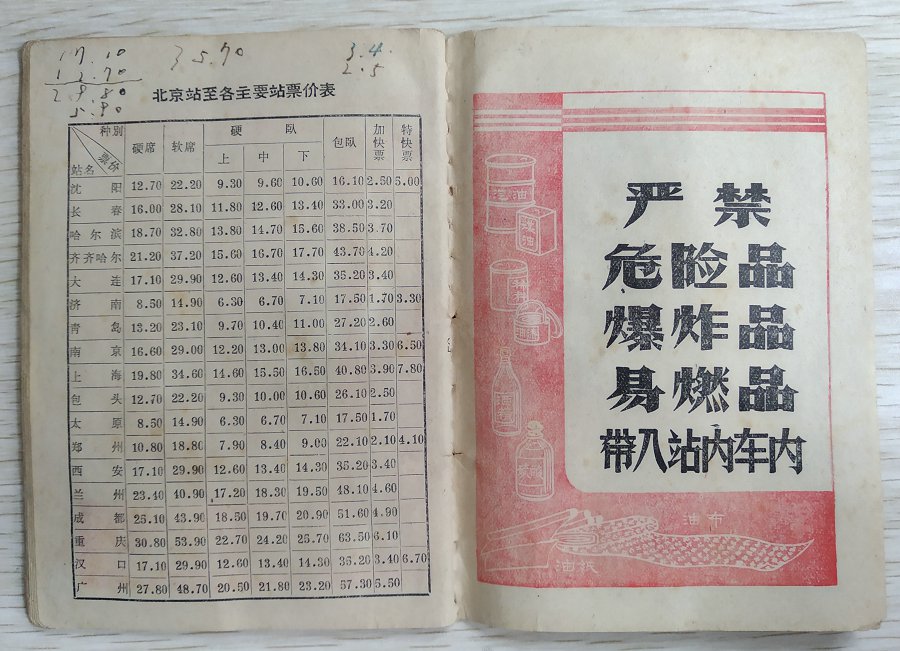 17.10
12.70
29.80
5.90
35.70
3.4.
2.5
北京站至各主要站票价表
种别 票价 站名 硬席 软席 硬卧 上 中 下 包卧 加快票 特快票
沈阳 12.70 22.20 9.30 9.60 10.60 16.10 2.50 5.00
长春 16.00 28.10 11.80 12.60 13.40 33.00 3.20
哈尔滨 18.70 32.80 13.80 14.70 15.60 38.50 3.70
齐齐哈尔 21.20 37.20 15.60 16.70 17.70 43.70 4.20
大连 17.10 29.90 12.60 13.40 14.30 35.20 3.40
济南 8.50 14.90 6.30 6.70 7.10 17.50 1.70 3.30
青岛 13.20 23.10 9.70 10.40 11.00 27.20 2.60
南京 16.60 29.00 12.20 13.00 13.80 34.10 3.30 6.50
上海 19.80 34.60 14.60 15.50 16.50 40.80 3.90 7.80
包头 12.70 22.20 9.30 10.00 10.60 26.10 2.50
太原 8.50 14.90 6.30 6.70 7.10 17.50 1.70
郑州 10.80 18.80 7.90 8.40 9.00 22.10 2.10 4.10
西安 17.10 29.90 12.60 13.40 14.30 35.20 3.40
兰州 23.40 40.90 17.20 18.30 19.50 48.10 4.60
成都 25.10 43.90 18.50 19.70 20.90 51.60 4.90
重庆 30.80 53.90 22.70 24.20 25.70 63.50 6.10
汉口 17.10 29.90 12.60 13.40 14.30 35.20 3.40 6.70
广州 27.80 48.70 20.50 21.80 23.20 57.30 5.50
严禁
危险品
爆炸品
易燃品
带入站内车内
煤油
油布
油纸